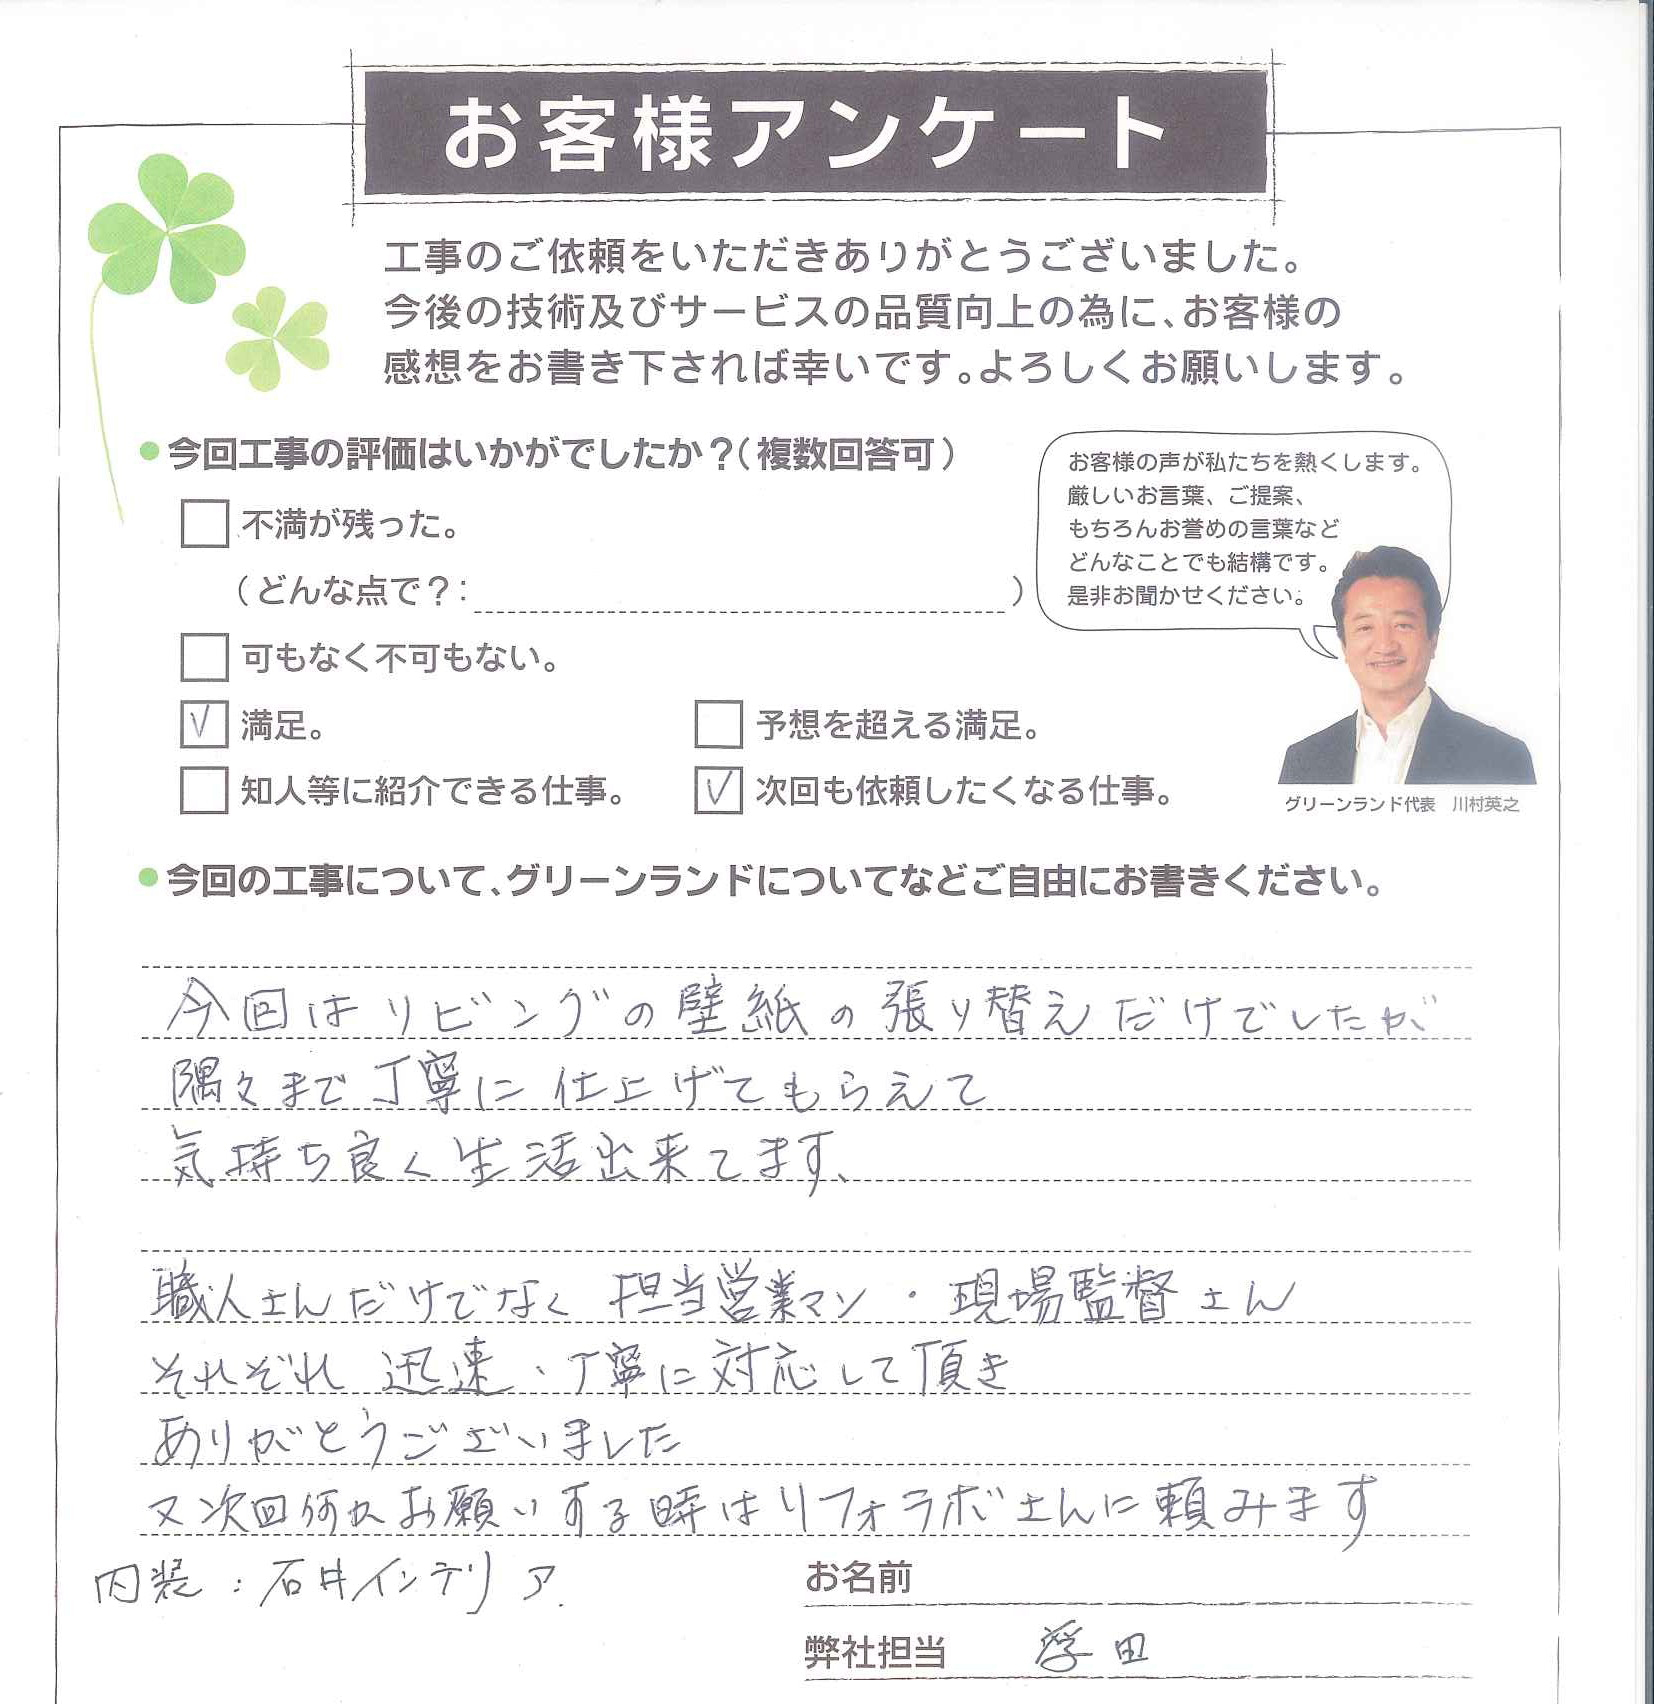 お客様アンケート
工事のご依頼をいただきありがとうございました。
今後の技術及びサービスの品質向上の為に、お客様の
感想をお書き下されば幸いです。よろしくお願いします。
今回工事の評価はいかがでしたか?(複数回答可)
不満が残った。
(どんな点で?: )
可もなく不可もない。
満足。
予想を超える満足。
知人等に紹介できる仕事。
次回も依頼したくなる仕事。
お客様の声が私たちを熱くします。
厳しいお言葉、ご提案、
もちろんお誉めの言葉など
どんなことでも結構です。
是非お聞かせください。
グリーンランド代表 川村英之
今回の工事について、グリーンランドについてなどご自由にお書きください。
今回はリビングの壁紙の張り替えだけでしたが
隅々まで丁寧に仕上げてもらえて
気持ち良く生活出来てます、
職人さんだけでなく担当営業マン・現場監督さん
それぞれ 迅速・丁寧に対応して頂き
ありがとうございました
又次回何かお願いする時はリフォラボさんに頼みます
内装:石井インテリア.
お名前
弊社担当 浮田